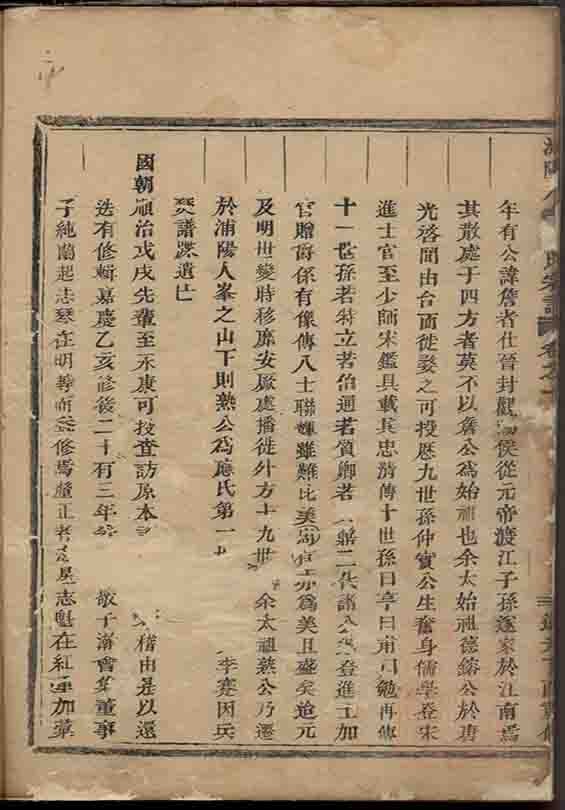 年有公諱詹者仕晉封觀侯從元帝渡江子孫遂家於江南焉
其散處于四方者莫不以詹公為始祖也余太始祖德鎔公於唐
光啓間由台而徙婺之可投歷九世孫仲實公生奮身儒學登宋
進士官至少師宋鑑具載其忠清傳十世孫曰亨曰甫曰勉再傳
十一世孫若特立若伯通若質卿若鼎二世諸公登進士加
官贈爵係有像傳八士聯輝雖難比美亦為美且盛矣迨元
及明世變時移靡安厥處播徙外方十九世余太祖燕公乃遷
於浦陽人峯之山下則燕公為應氏第一李蹇因兵
燹譜牒遺亡
國朝順治戊戌先輩至永康可投查訪原本稽由是以還
迭有修輯嘉慶乙亥修後二十有三年敬子濤會集董事
子純蘭起志琴在明等而修焉釐正者志魁在紅運加葉